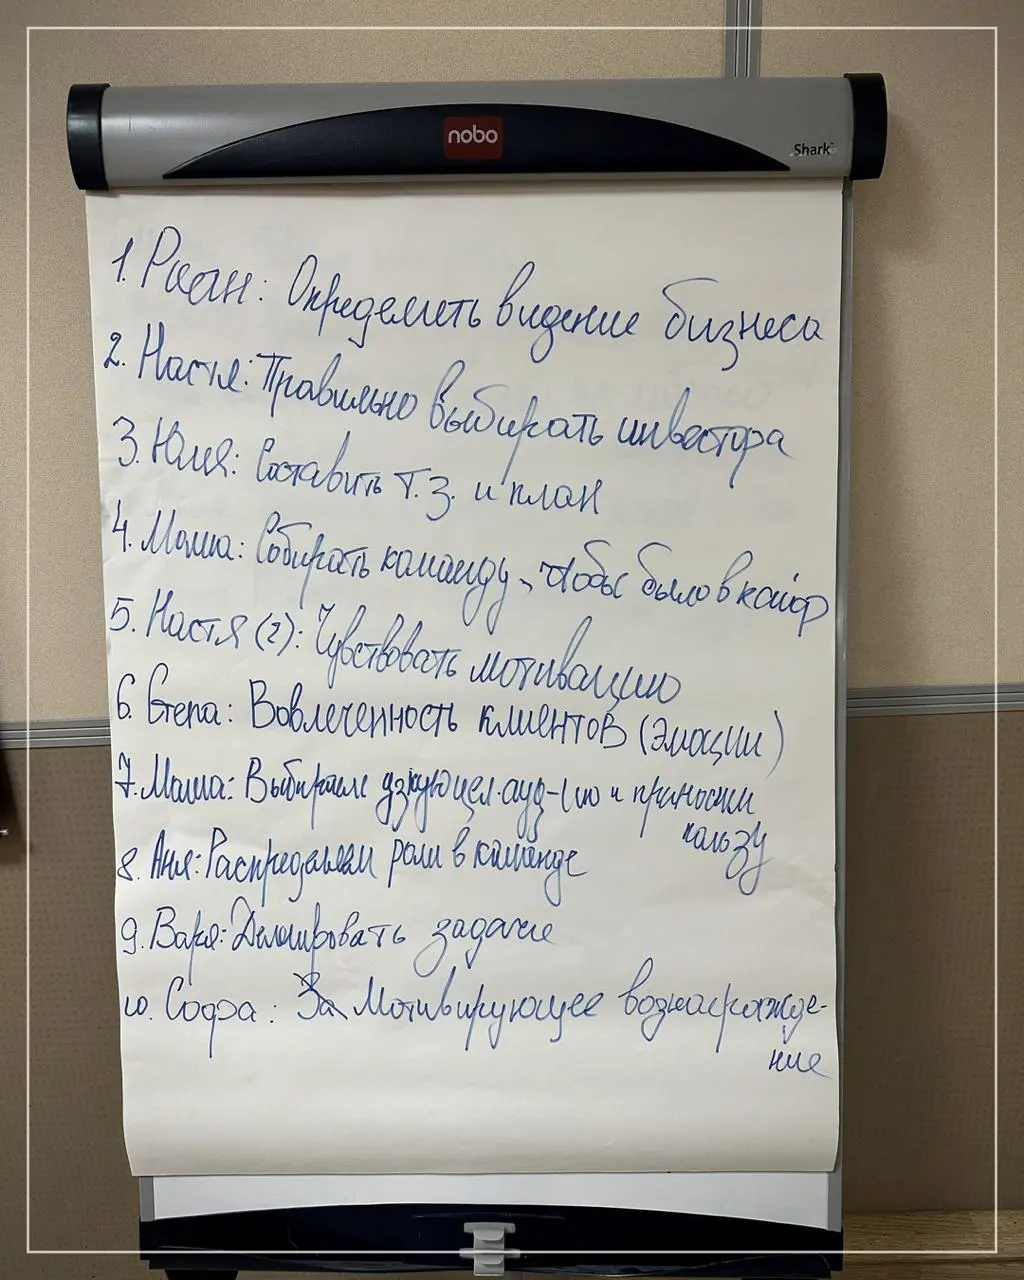 nobo
Shark
1. Раян: Определить видение бизнеса
2. Настя: Правильно выбирать инвестора
3. Юля: Составить Т.З. и план
4. Маша: Собирать команду, чтобы было в кайф
5. Настя (2): Чувствовать мотивацию
6. Степа: Вовлеченность клиентов (Эмоции)
7. Маша: Выбираем узкую цел. ауд-ию и приносим
пользу
8. Аня: Распределяем роли в команде
9. Варя: Делегировать задачи
10. Софа: Мотивирующее вознагражде-
ние